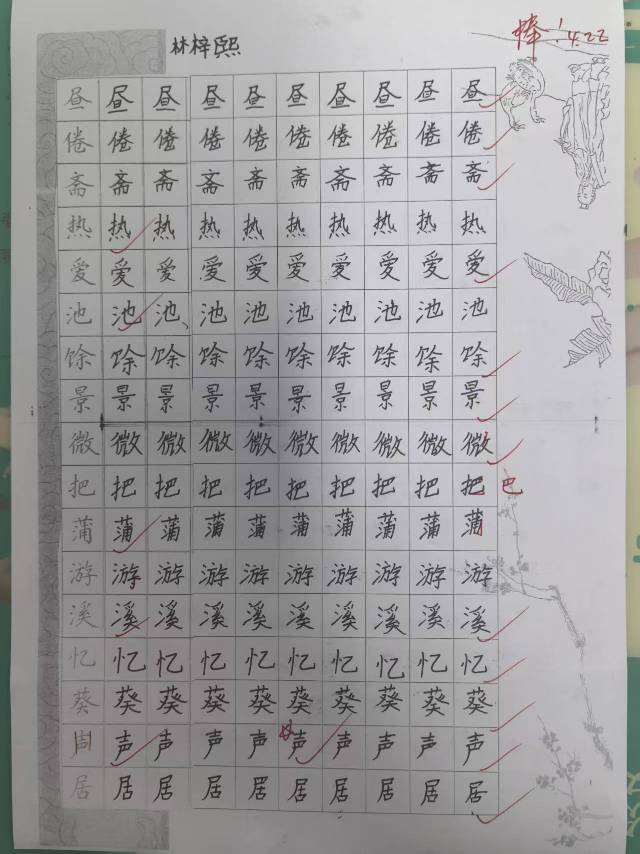 林梓熙
棒！4.22
昼昼昼昼昼昼昼昼昼昼
倦倦倦倦倦倦倦倦倦倦
斋斋斋斋斋斋斋斋斋斋
热热热热热热热热热热
爱爱爱爱爱爱爱爱爱爱
池池池池池池池池池池
馀馀馀馀馀馀馀馀馀馀
景景景景景景景景景景
微微微微微微微微微微
把把把把把把把把把把 巴
蒲蒲蒲蒲蒲蒲蒲蒲蒲蒲
游游游游游游游游游游
溪溪溪溪溪溪溪溪溪溪
忆忆忆忆忆忆忆忆忆忆
葵葵葵葵葵葵葵葵葵葵
声声声声声声声声声
居居居居居居居居居居